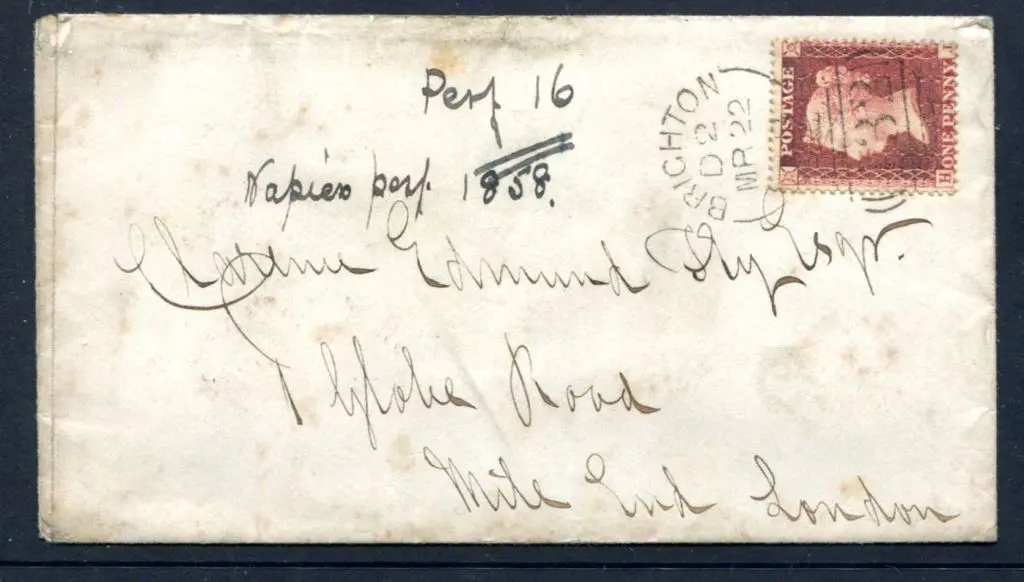 Perf 16
Napier perf. 1858.
BRIGHTON
D 2
MR 22
POSTAGE
ONE PENNY
H
J
Clarence Edmund Fry Esqr.
1 Globe Road
Mile End London